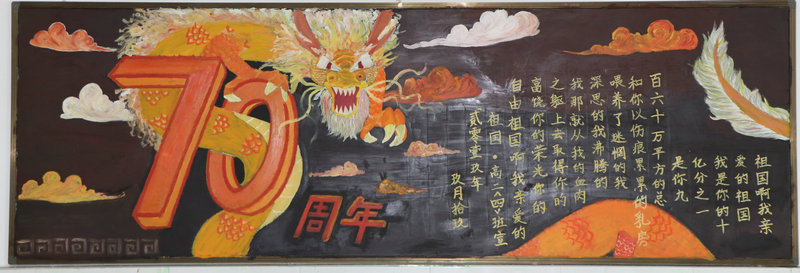 70
周年
祖国啊我亲
爱的祖国
我是你的十
亿分之一
是你九
百六十万平方的总
和你以伤痕累累的乳房
喂养了迷惘的我
深思的我沸腾的
我那就从我的血肉
之躯上去取得你的
富饶你的荣光你的
自由祖国啊我亲爱的
祖国·高二(四)班宣
贰零壹玖年
玖月拾玖